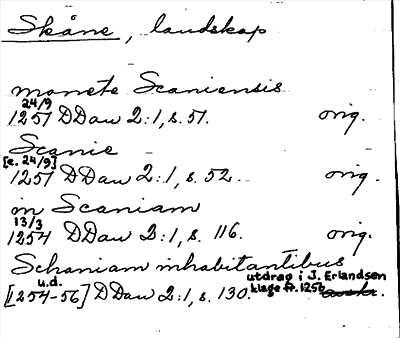 Skåne, landskap
monete Scaniensis
24/9
1257 DDan 2:1, s. 51. orig.
Scanie
[e. 24/9]
1257 DDan 2:1, s. 52. orig.
in Scaniam
13/3
1254 DDan 2:1, s. 116. orig.
Schaniam inhabitantibus
u.d. utdrag i J. Erlandsen
[1254-56] DDan 2:1, s. 130. klage fr. 1256